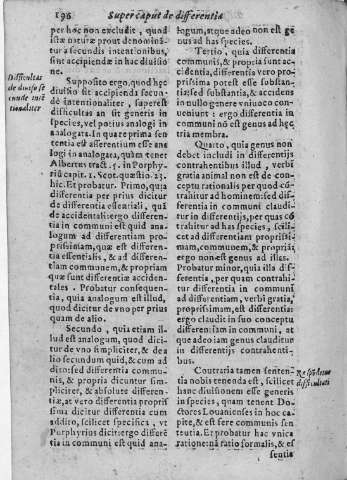 196 Super caput de differentia
per hoc non excludit, quod
istæ naturæ prout denominã-
tur a secundis intentionibus,
sint accipiendæ in hac diuisio
ne.
Difficultas
de diuisõ se
cundo intẽ
tionaliter
Supposito ergo, quod hęc
diuisio sit accipienda secun-
dò intentionaliter, superest
difficultas an sit generis in
species, vel potius analogi in
analogata. In qua re prima sen
tentia est asserentium esse ana
logi in analogata, quàm tenet
Albertus tract. 5. in Porphy-
riũ capit. 1. Scot. quæstio. 23.
hic. Et probatur. Primo, quia
differentia per prius dicitur
de differentia essentiali, quá
de accidentali: ergo differen-
tia in communi est quid ana-
logum ad differentiam pro-
priissimam, quæ est differen-
tia essentialis, & ad differen-
tiam communem, & propriam
quæ sunt differentiæ acciden-
tales. Probatur consequen-
tia, quia analogum est illud,
quod dicitur de vno per prius
quam de alio.
Secundo, quia etiam il-
lud est analogum, quod dici-
tur de vno simpliciter, & de a
lio secundum quid, & cum ad
dito: sed differentia commu-
nis, & propria dicuntur sim-
pliciter, & absolute differen-
tiæ, at vero differentia propriis
sima dicitur differentia cum
addito, scilicet specifica, vt
Porphyrius dicit: ergo differẽ
tia in communi est quid ana-
logum, atque adeo non est ge
nus ad has species.
Tertio, quia differentia
communis, & propria sunt ac
cidentia, differentia vero pro-
priissima potest esse substan-
tia; sed substantia, & accidens
in nullo genere vniuoco con-
ueniunt: ergo differentia in
communi nõ est genus ad hęc
tria membra.
Quarto, quia genus non
debet includi in differentijs
contrahentibus illud, verbi
gratia animal non est de con-
ceptu rationalis per quod cõ-
trahitur ad hominem: sed dif
ferentia in communi claudi-
tur in differentijs, per quas cõ
trahitur ad has species, scili-
cet ad differentiam propriissi-
mam, communem, & propriã;
ergo non est genus ad illas.
Probatur minor, quia illa dif
ferentia, per quam contrahi-
tur differentia in communi
ad differentiam, verbi gratia,
propriissimam, est differentia:
ergo claudit in suo conceptu
differentiam in communi, at
que adeo iam genus clauditur
in differentijs contrahenti-
bus.
Contraria tamen senten-
tia nobis tenenda est, scilicet
hanc diuisionem esse generis
in species, quam tenent Do-
ctores Louanienses in hoc ca
pite, & est res communis sen
tẽtia. Et probatur hac vnica
ratione: nã ratio formalis, & es
sentia
Resoluitur
difficultas